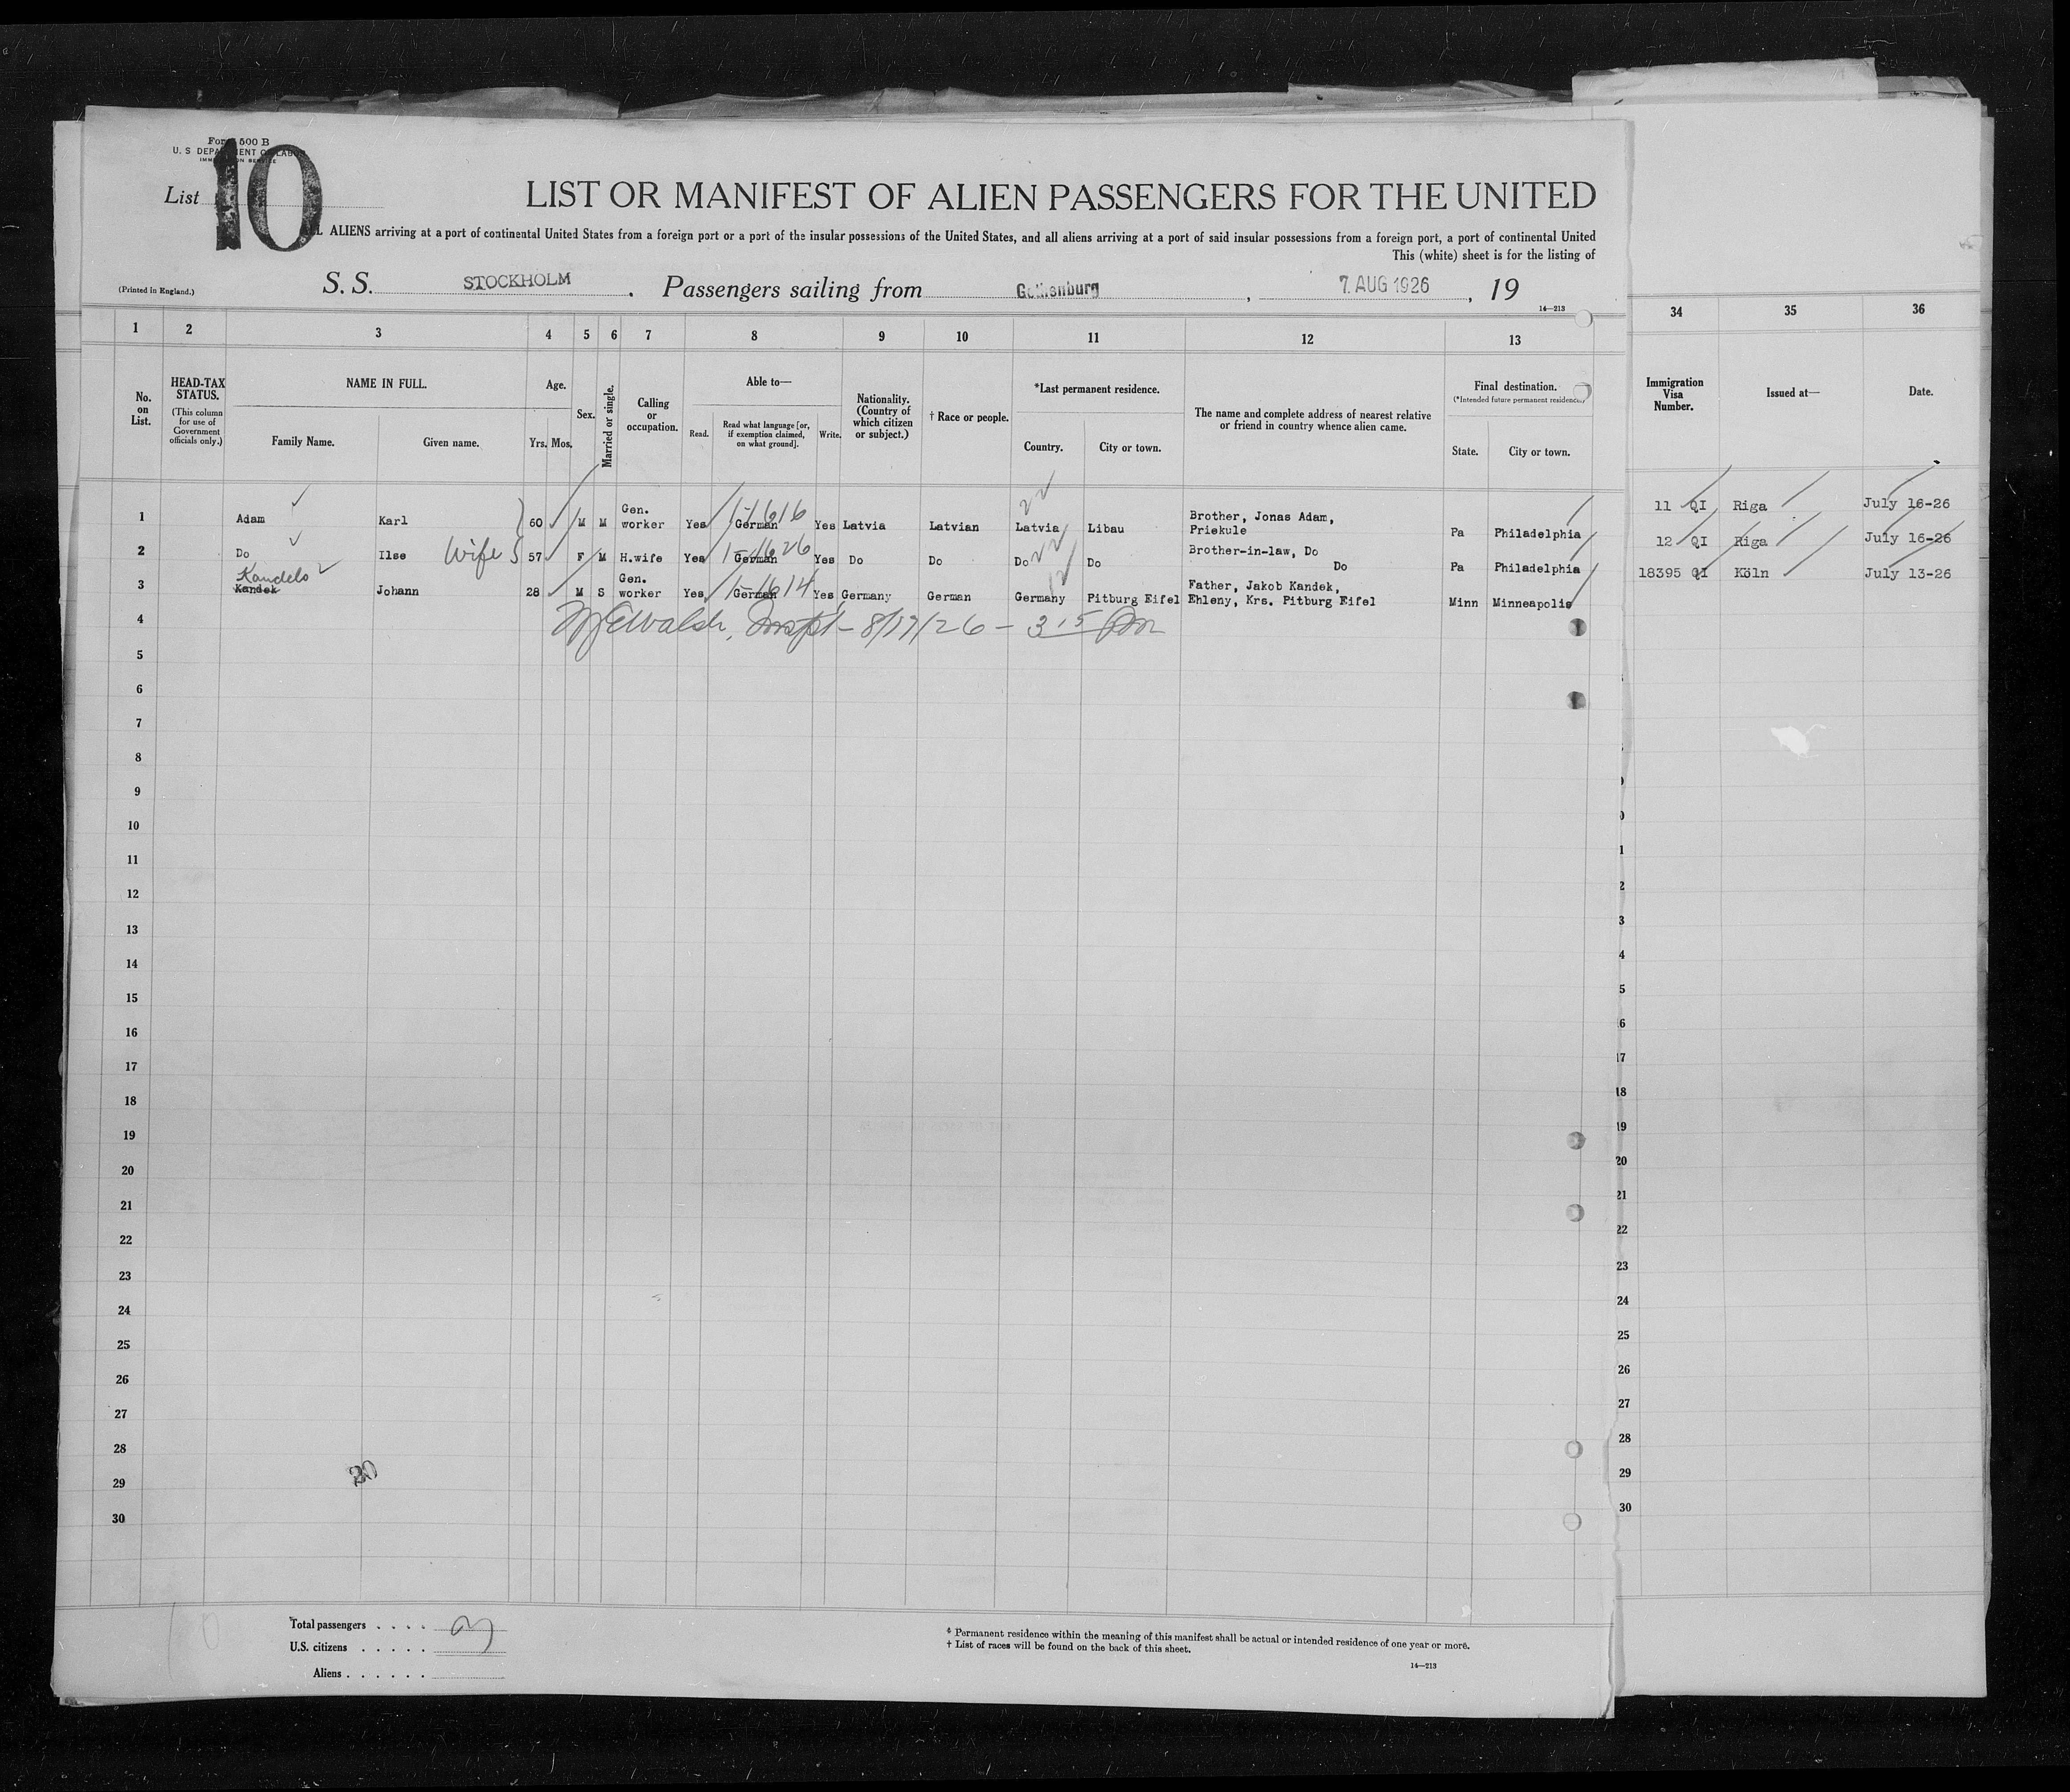 Form 500 B
U. S DEPARTMENT OF LABOR
IMMIGRATION SERVICE
List 10
LIST OR MANIFEST OF ALIEN PASSENGERS FOR THE UNITED
ALL ALIENS arriving at a port of continental United States from a foreign port or a port of the insular possessions of the United States, and all aliens arriving at a port of said insular possessions from a foreign port, a port of continental United
This (white) sheet is for the listing of
(Printed in England.)
S. S. STOCKHOLM . Passengers sailing from Gothenburg , 7. AUG 1926 , 19
14—213
1 2 3 4 5 6 7 8 9 10 11 12 13 34 35 36
No. on List.
HEAD-TAX STATUS.
(This column for use of Government officials only.)
NAME IN FULL.
Family Name. Given name.
Age.
Yrs. Mos.
Sex.
Married or single.
Calling or occupation.
Able to—
Read. Read what language [or, if exemption claimed, on what ground]. Write.
Nationality. (Country of which citizen or subject.)
† Race or people.
*Last permanent residence.
Country. City or town.
The name and complete address of nearest relative or friend in country whence alien came.
Final destination.
(*Intended future permanent residence.)
State. City or town.
Immigration Visa Number.
Issued at—
Date.
1 Adam Karl 60 M M Gen. worker Yes German 1-1616 Yes Latvia Latvian Latvia Libau Brother, Jonas Adam, Priekule Pa Philadelphia 11 QI Riga July 16-26
2 Do Ilse Wife 57 F M H.wife Yes German 1-1626 Yes Do Do Do Do Brother-in-law, Do Do Pa Philadelphia 12 QI Riga July 16-26
Kandels
3 Kandek Johann 28 M S Gen. worker Yes German 1-1614 Yes Germany German Germany Pitburg Eifel Father, Jakob Kandek, Ehleny, Krs. Pitburg Eifel Minn Minneapolis 18395 QI Köln July 13-26
4 Inspt - 8/17/26 - 3 15 Pm
5
6
7
8
9
10
11
12
13
14
15
16
17
18
19
20
21
22
23
24
25
26
27
28
29
30
Total passengers . . . .
U.S. citizens . . . . .
Aliens . . . . . .
* Permanent residence within the meaning of this manifest shall be actual or intended residence of one year or more.
† List of races will be found on the back of this sheet.
14—213